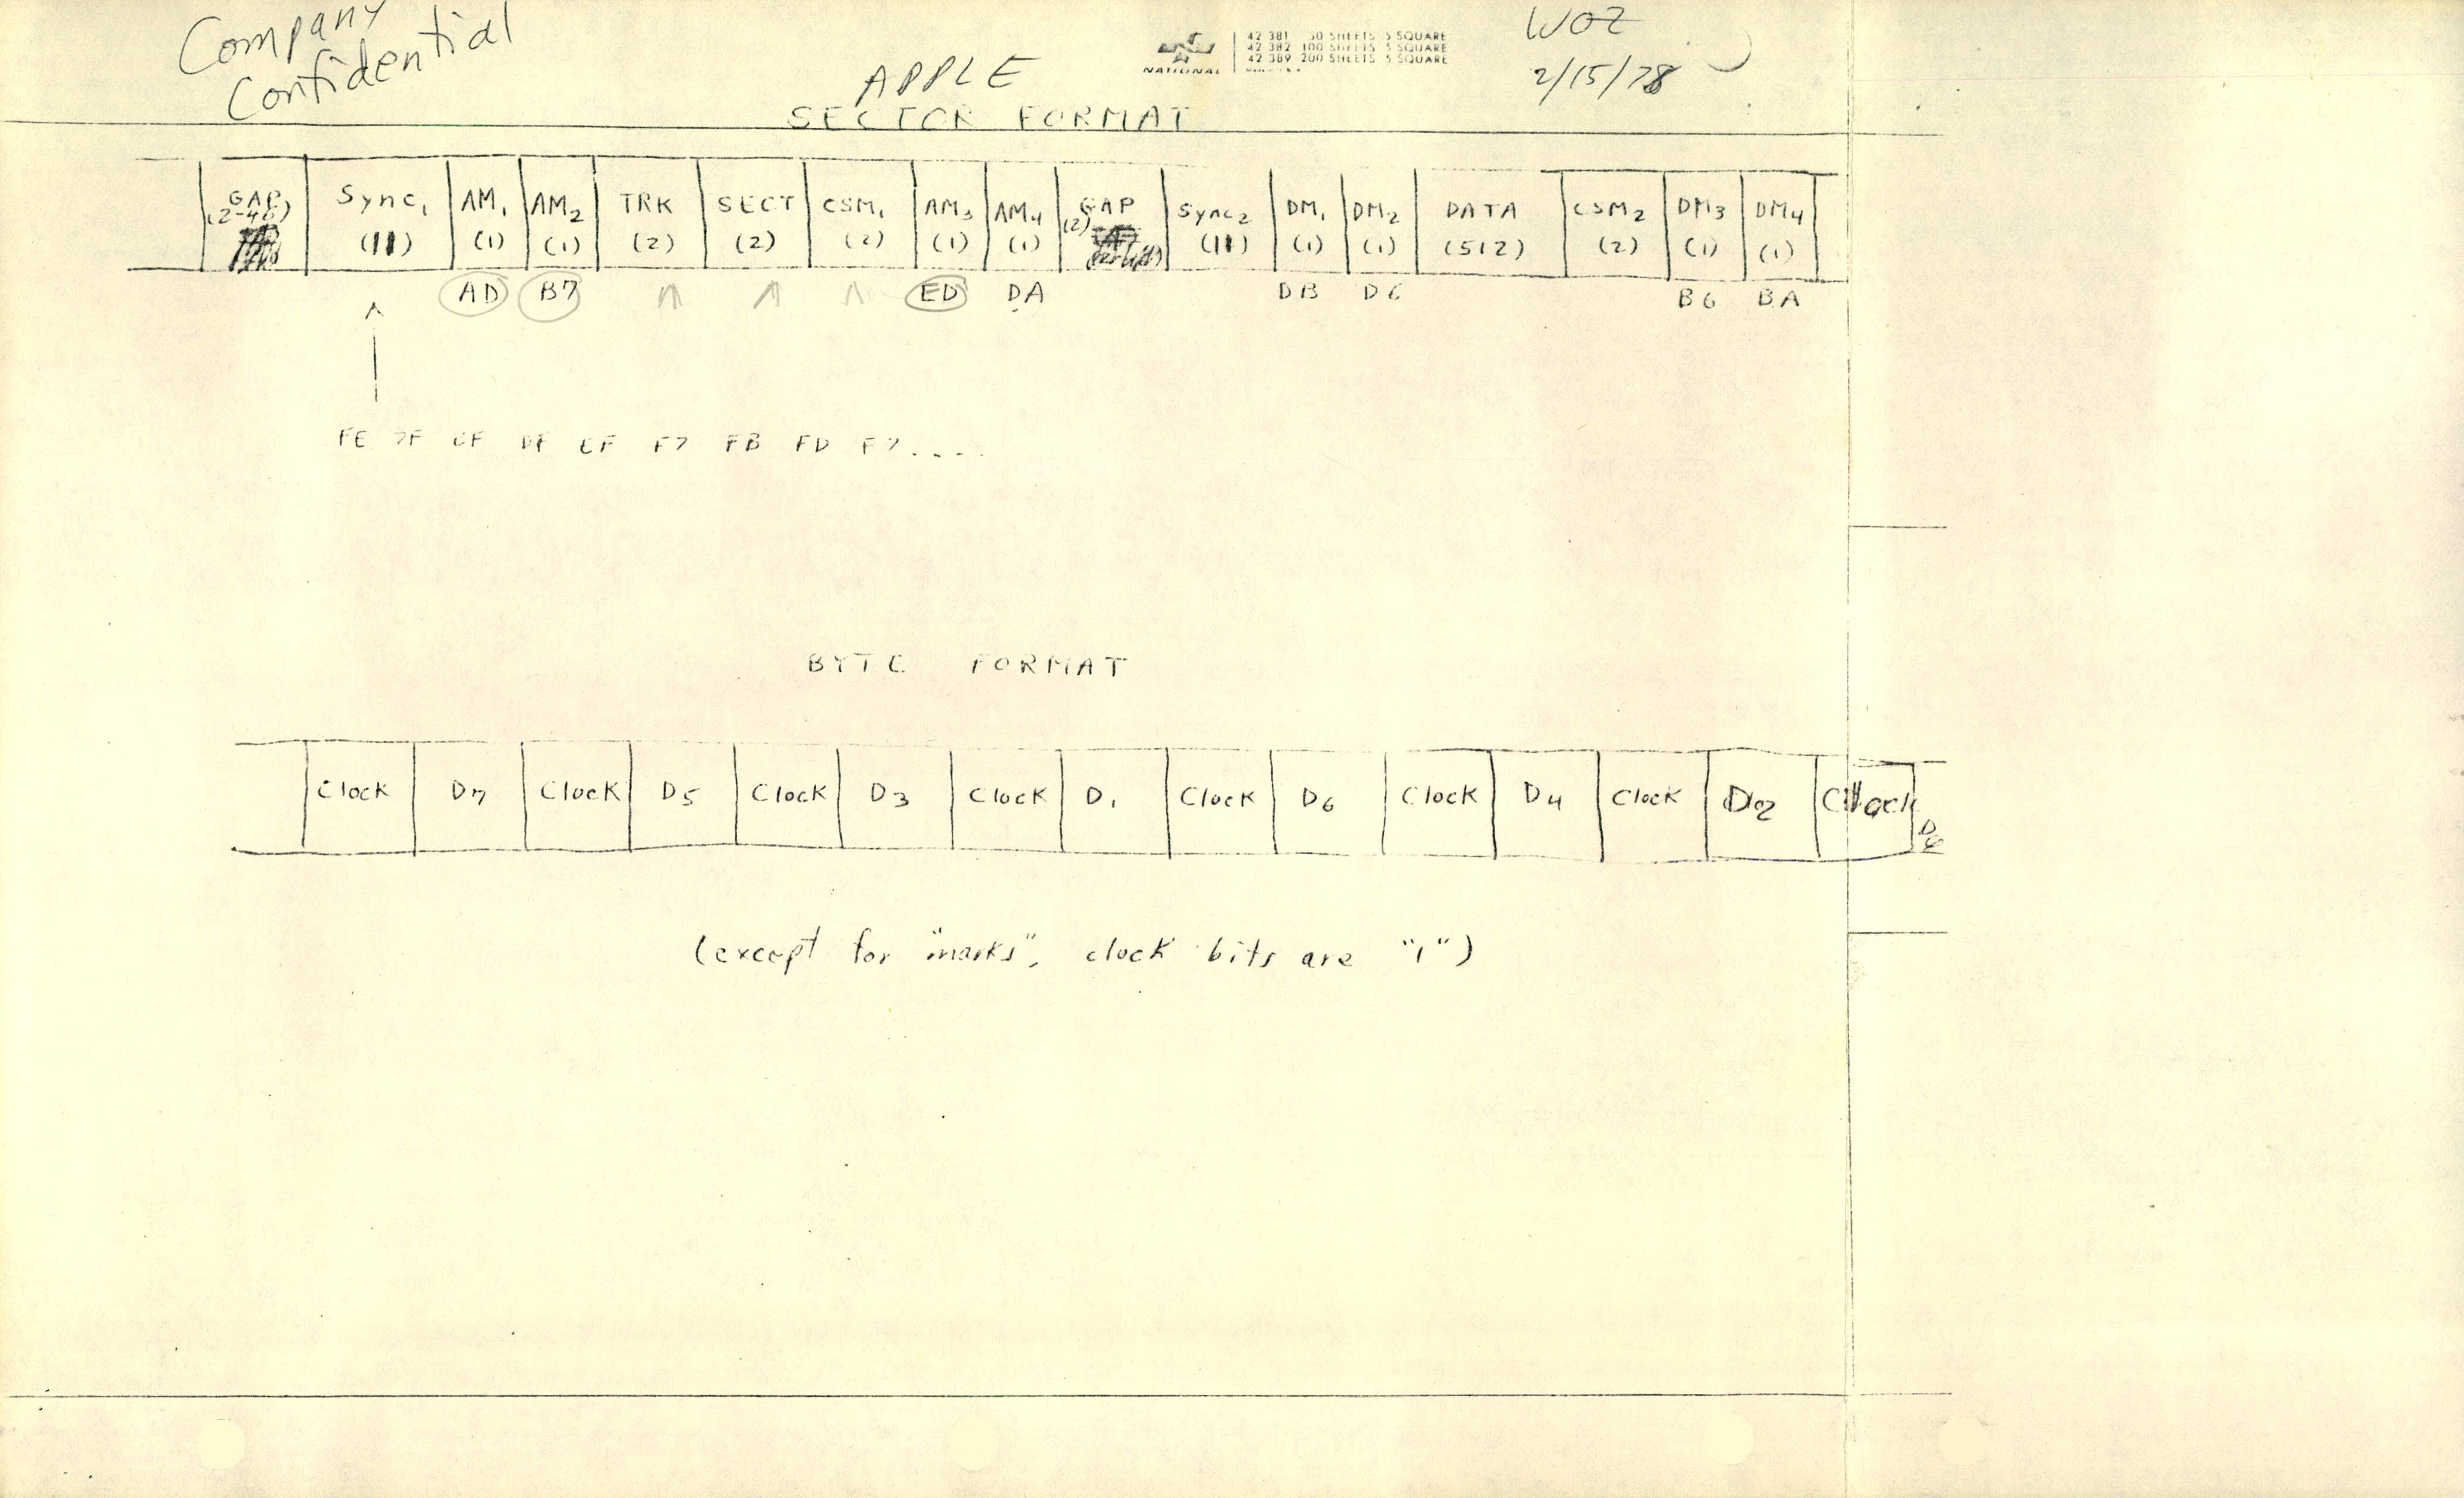 Company
Confidential
APPLE
SECTOR FORMAT
NATIONAL
42 381 50 SHEETS 5 SQUARE
42 382 100 SHEETS 5 SQUARE
42 389 200 SHEETS 5 SQUARE
WOZ
2/15/78
GAP Sync1 AM1 AM2 TRK SECT CSM1 AM3 AM4 GAP Sync2 DM1 DM2 DATA CSM2 DM3 DM4
(2-46) (11) (1) (1) (2) (2) (2) (1) (1) (2) (11) (1) (1) (512) (2) (1) (1)
AD B7 ED DA DB D6 B6 BA
FE 7F DF EF F7 FB FD F7....
BYTE FORMAT
Clock D7 Clock D5 Clock D3 Clock D1 Clock D6 Clock D4 Clock D2 Clock
(except for "marks", clock bits are "1")